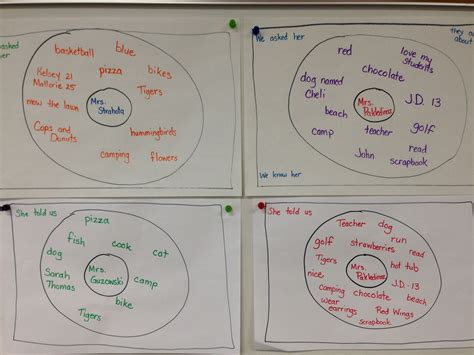 asked
her
basketball
blue
Kelsey 21
Mallorie 25
pizza
bikes
Tigers
mow the lawn
Mrs.
Strahota
Cops and
Donuts
hummingbirds
camping
flowers
We asked her
they
about
red
love my
Students
chocolate
dog named
Cheli
Mrs.
J.D. 13
beach
golf
camp
teacher
read
John
scrapbook
We know her
She told us
pizza
fish
cook
cat
dog
Mrs.
Guzowski
camp
Sarah
Thomas
bike
Tigers
She told us
Teacher
dog
run
golf
strawberries
read
Tigers
hot tub
nice
Mrs.
J.D. 13
camping
chocolate
beach
wear
earrings
Red Wings
scrapbook